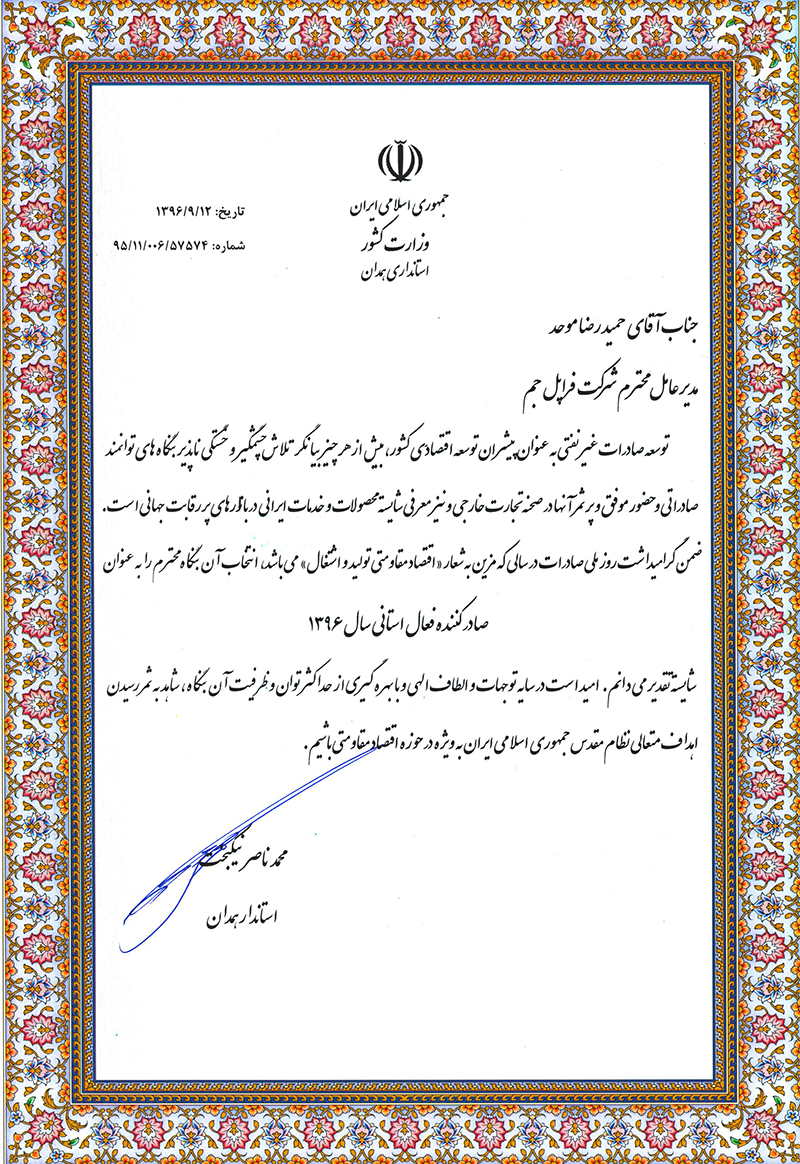 جمهوری اسلامی ایران
وزارت کشور
استانداری همدان
تاریخ: ۱۳۹۶/۹/۱۲
شماره: ۹۵/۱۱/۰۰۶/۵۷۵۷۴
جناب آقای حمید رضا موحد
مدیر عامل محترم شرکت فراپل جم
توسعه صادرات غیر نفتی به عنوان پیشران توسعه اقتصادی کشور، بیش از هر چیز بیانگر تلاش چشمگیر و خستگی ناپذیر بنگاه های توانمند
صادراتی و حضور موفق و پر ثمر آنها در صحنه تجارت خارجی و نیز معرفی شایسته محصولات و خدمات ایرانی در بازارهای پر رقابت جهانی است.
ضمن گرامیداشت روز ملی صادرات در سالی که مزین به شعار «اقتصاد مقاومتی تولید و اشتغال» می باشد، انتخاب آن بنگاه محترم را به عنوان
صادر کننده فعال استانی سال ۱۳۹۶
شایسته تقدیر می دانم. امید است در سایه توجهات و الطاف الهی و با بهره گیری از حداکثر توان و ظرفیت آن بنگاه، شاهد به ثمر رسیدن
اهداف متعالی نظام مقدس جمهوری اسلامی ایران به ویژه در حوزه اقتصاد مقاومتی باشیم.
محمد ناصر نیکبخت
استاندار همدان